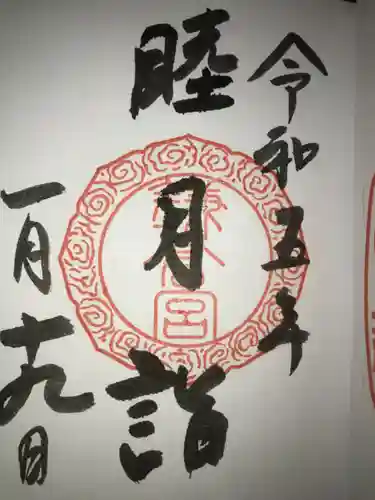 令和五年
睦月詣
一月十九日